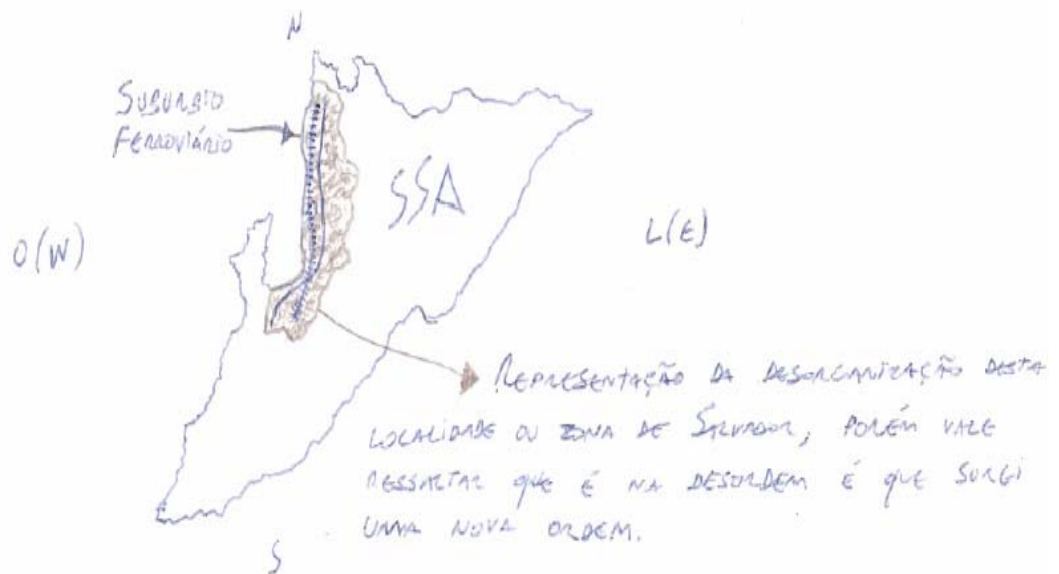 N
SUBURBIO
FERROVIÁRIO
SSA
O(W)
L(E)
REPRESENTAÇÃO DA DESORGANIZAÇÃO DESTA
LOCALIDADE OU ZONA DE SALVADOR, PORÉM VALE
RESSALTAR QUE É NA DESORDEM É QUE SURGI
UMA NOVA ORDEM.
S